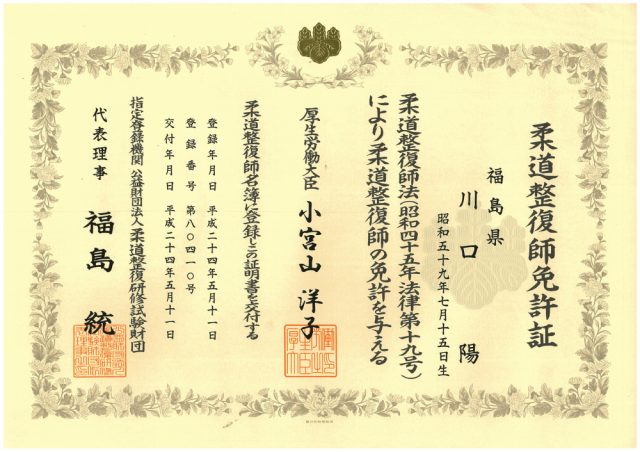 柔道整復師免許証
福島県
川口 陽
昭和五十九年七月十五日生
柔道整復師法(昭和四十五年法律第十九号)
により柔道整復師の免許を与える
厚生労働大臣 小宮山 洋子
柔道整復師名簿に登録しこの証明書を交付する
登録年月日 平成二十四年五月十一日
登録番号 第八〇四一〇号
交付年月日 平成二十四年五月十一日
指定登録機関 公益財団法人柔道整復研修試験財団
代表理事 福島 統